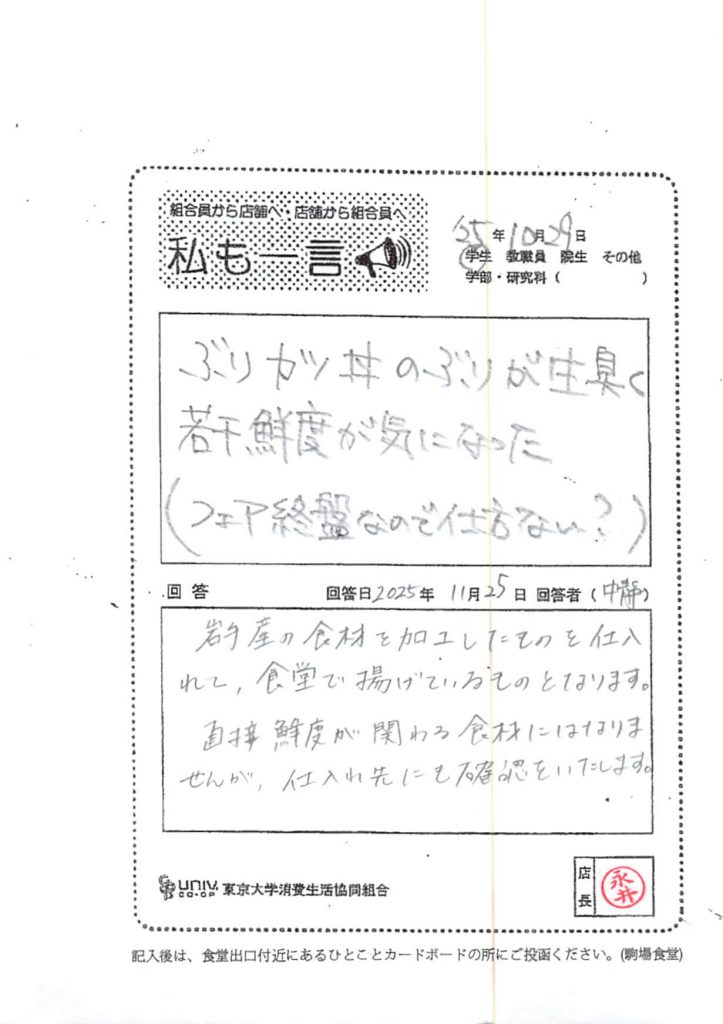 組合員から店舗へ・店舗から組合員へ
私も一言
25年10月29日
学生 教職員 院生 その他
学部・研究科（ ）
ぶりカツ丼のぶりが生臭く
若干鮮度が気になった
(フェア終盤なので仕方ない?)
回答 回答日2025年 11月25日 回答者（中静）
岩手産の食材を加工したものを仕入
れて，食堂で揚げているものとなります。
直接鮮度が関わる食材にはなりま
せんが，仕入れ先にも確認をいたします。
UNIV CO-OP 東京大学消費生活協同組合
店長
永井
記入後は、食堂出口付近にあるひとことカードボードの所にご投函ください。(駒場食堂)